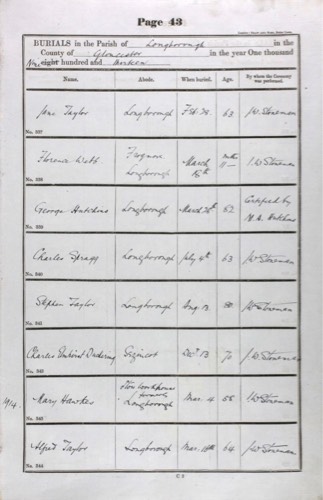 Page 43
BURIALS in the Parish of Longborough in the
County of Gloucester in the year One thousand
Nine eight hundred and
Name. Abode. When buried. Age. By whom the Ceremony was performed.
Jane Taylor Longborough Feb. 63 J W Stoneman
No. 337
Florence Webb Longborough March 18th 11 J W Stoneman
No. 338
George Hutchins Longborough March 82 Certified by Hutchins
No. 339
Charles Spragg Longborough July 4th 63 J W Stoneman
No. 340
Stephen Taylor Longborough Aug. 13 J W Stoneman
No. 341
Charles Sezincot Dec. 13 70 J W Stoneman
No. 342
1914. Mary Hawkes Stow Workhouse formerly Longborough Mar. 4 58 J W Stoneman
No. 343
Alfred Taylor Longborough Mar. 64 J W Stoneman
No. 344